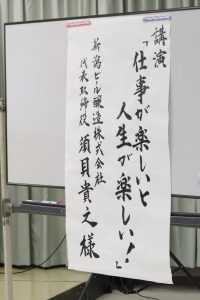 講演
「仕事が楽しいと
人生が楽しい!」
新潟ビール醸造株式会社
代表取締役 須貝貴之様